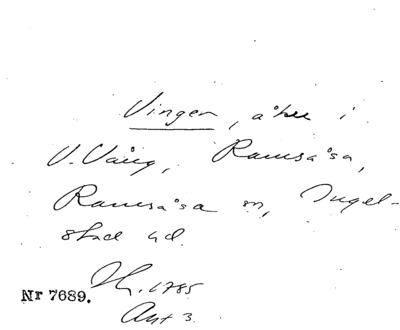 Vingen, åker i
V. Vång, Ramsåsa,
Ramsåsa sn, Ingel-
stad hd.
Th. 1785
Akt 3.
Nr 7689.